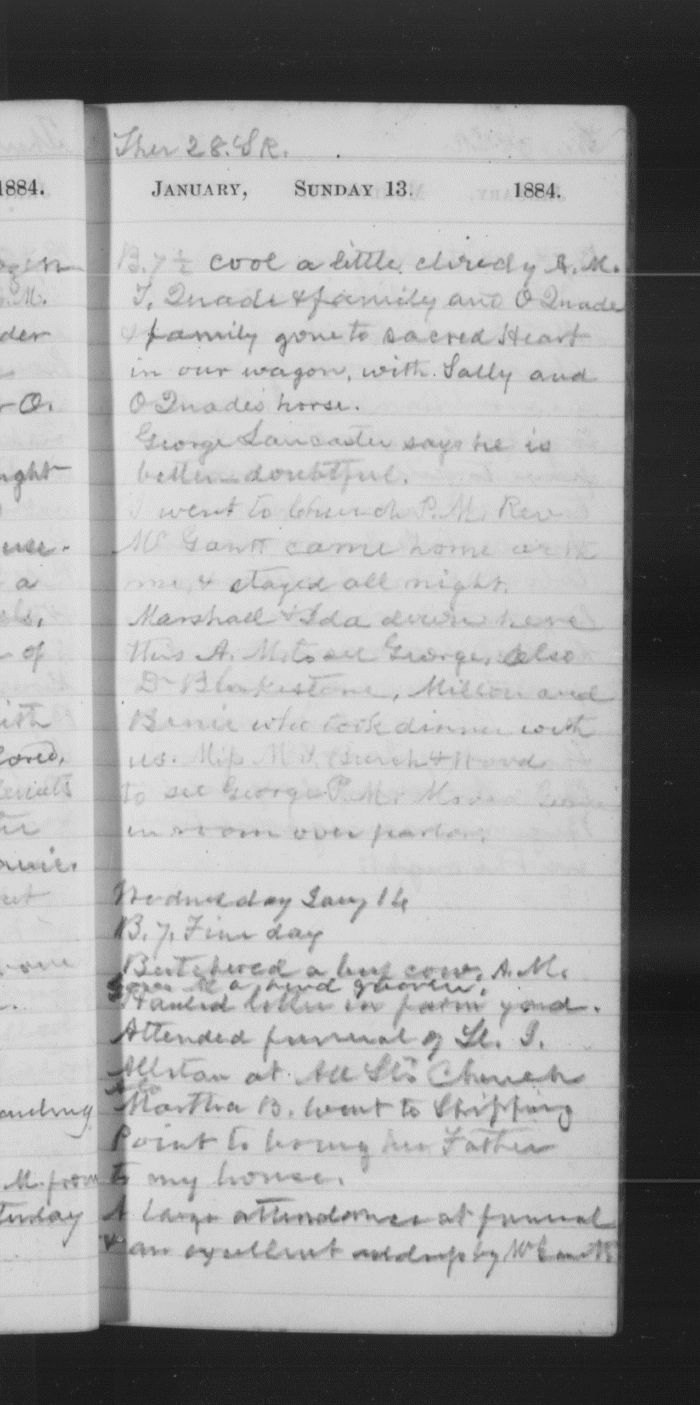 Ther 28. S R.
1884.
JANUARY, SUNDAY 13. 1884.
B. 7 ½ cool a little cloudy A. M.
T. Quade & family and O Quade
& family gone to sacred Heart
in our wagon, with Sally and
O Quades horse.
George Lancaster says he is
better doubtful.
I went to Church P. M. Rev
Mr Gantt came home with
me, & stayed all night.
Marshall & Ida down here
this A. M. to see George, also
Dr Blakestone, Milton and
who took dinner with
us. Miss M & Burch &
to see George P. M. Moved George
in room over parlor.
Wednesday Jany 16
B. 7. Fine day
Butchered a beef cow, A. M.
Gave M a hind quarter,
Hauled litter in farm yard.
Attended funeral of St. I.
Allstan at All Sts Church
Martha B. went to Shipping
Point to bring her Father
to my house.
A large attendance at funeral
& an excellent address by Mr Gantt